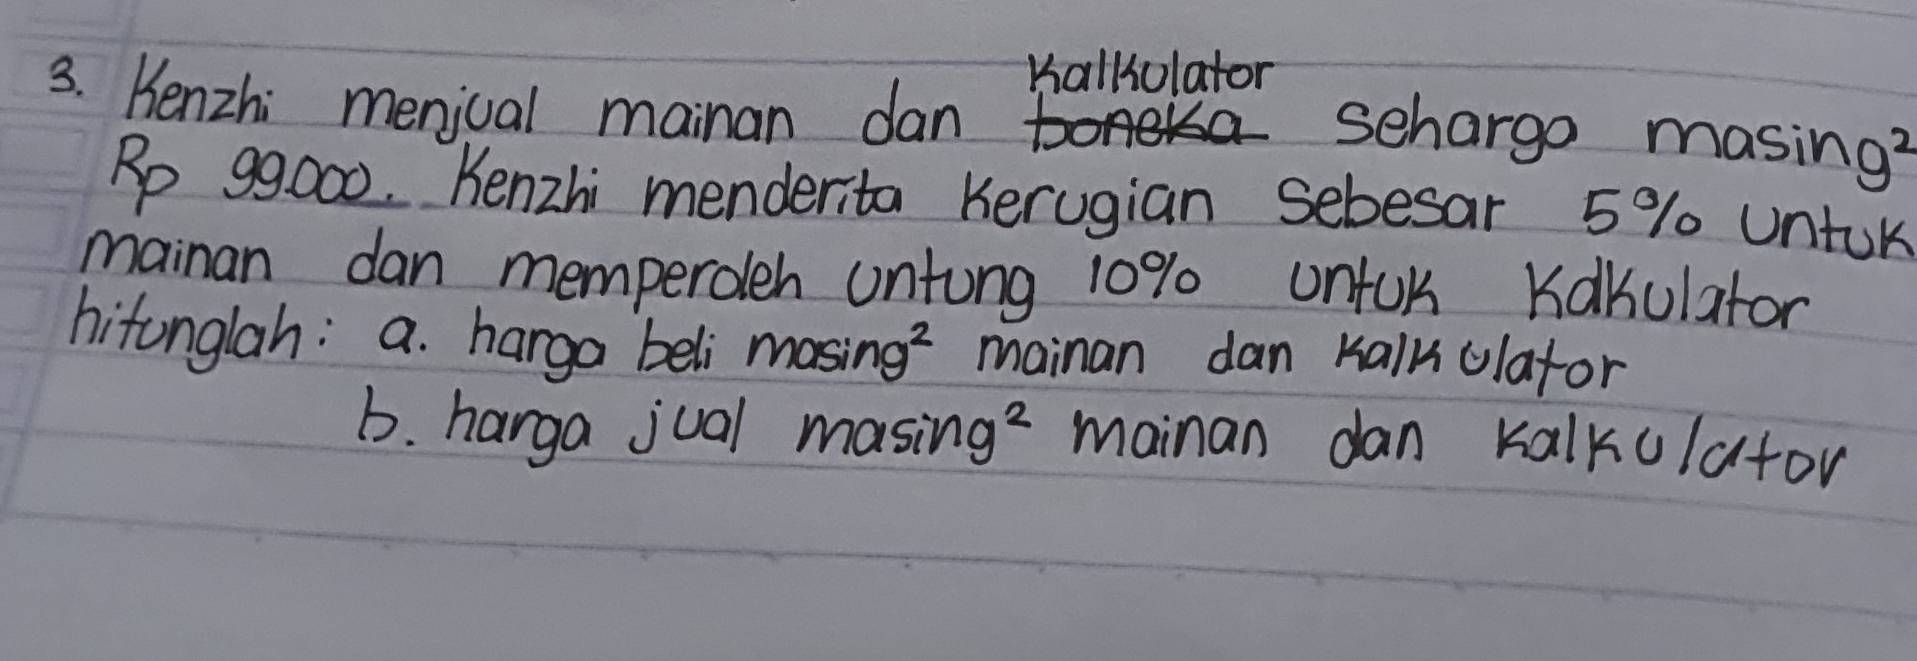 3. Kenzhi menjual mainan dan Kalkulator ~~boneka~~ seharga masing²
Rp 99.000. Kenzhi menderita kerugian sebesar 5% untuk
mainan dan memperoleh untung 10% untuk Kalkulator
hitunglah: a. harga beli masing² mainan dan kalkulator
b. harga jual masing² mainan dan kalkulator